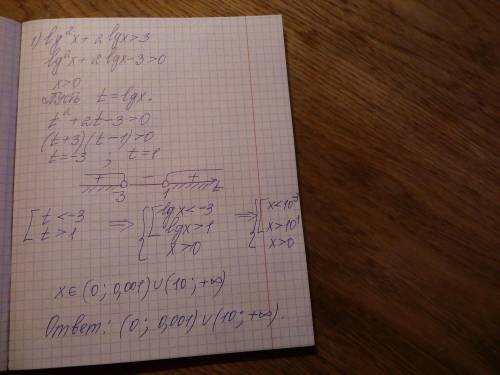 1) lg²x + 2 lgx > 3
lg²x + 2 lgx - 3 > 0
x > 0
Пусть t = lgx.
t² + 2t - 3 > 0
(t+3)(t-1) > 0
t = -3 ; t = 1
+ - +
3 1 t
[ t < -3 ⇒ { [ lgx < -3 ⇒ { [ x < 10⁻³
t > 1 lgx > 1 x > 10¹
x > 0 x > 0
x ∈ (0; 0,001) ∪ (10; +∞)
Ответ: (0; 0,001) ∪ (10; +∞).